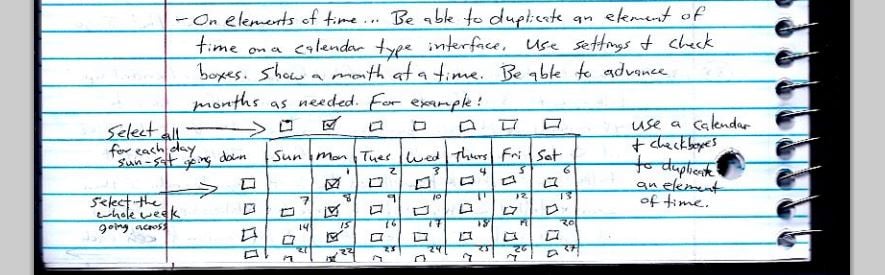 - On elements of time... Be able to duplicate an element of
time on a calendar type interface. Use settings & check
boxes. Show a month at a time. Be able to advance
months as needed. For example:
Select all
for each day
sun-sat going down
Sun Mon Tues Wed Thurs Fri Sat
1 2 3 4 5 6
Select the
whole week
going across
7 8 9 10 11 12 13
14 15 16 17 18 19 20
21 22 23 24 25 26 27
use a calendar
& checkboxes
to duplicate
an element
of time.